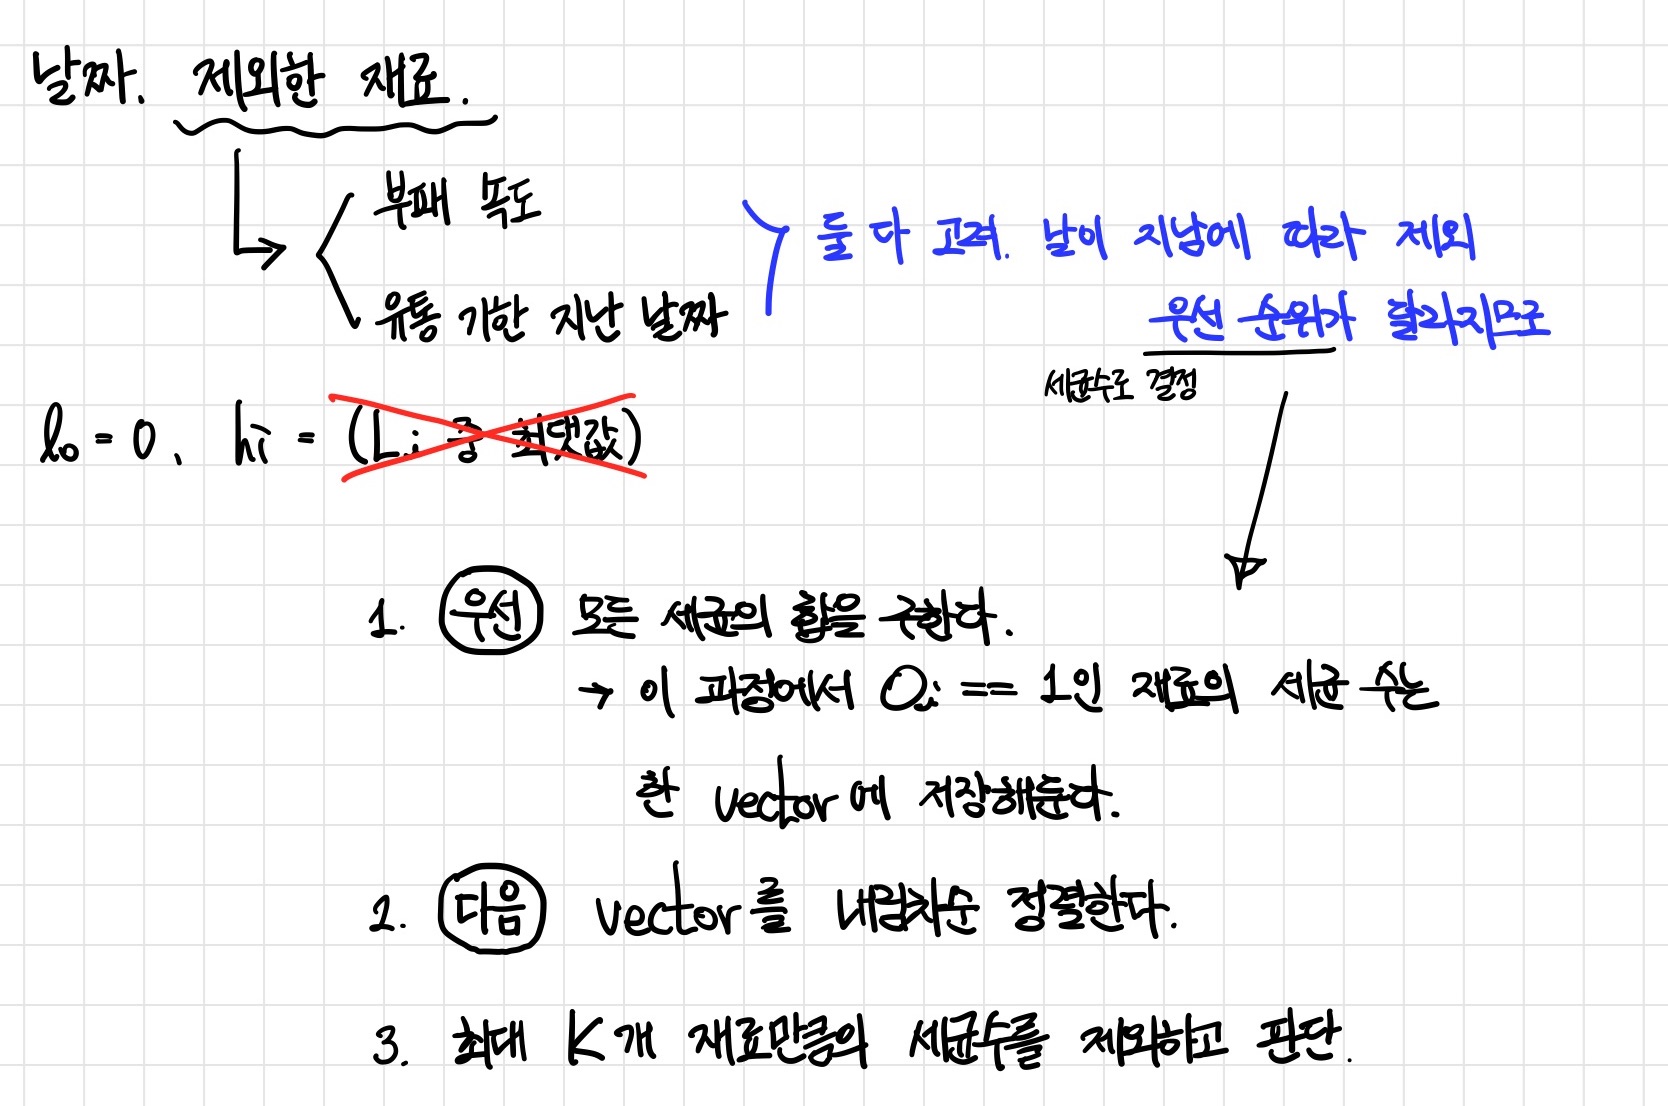 날짜. 제외한 재료.
부패 속도
유통 기한 지난 날짜
둘 다 고려. 날이 지남에 따라 제외
우선 순위가 달라지므로
세균수로 결정
lo = 0, hi = (Li 중 최댓값)
1. 우선 모든 세균의 합을 구한다.
→ 이 과정에서 Oi == 1인 재료의 세균 수는
한 vector에 저장해둔다.
2. 다음 vector를 내림차순 정렬한다.
3. 최대 K개 재료만큼의 세균수를 제외하고 판단.